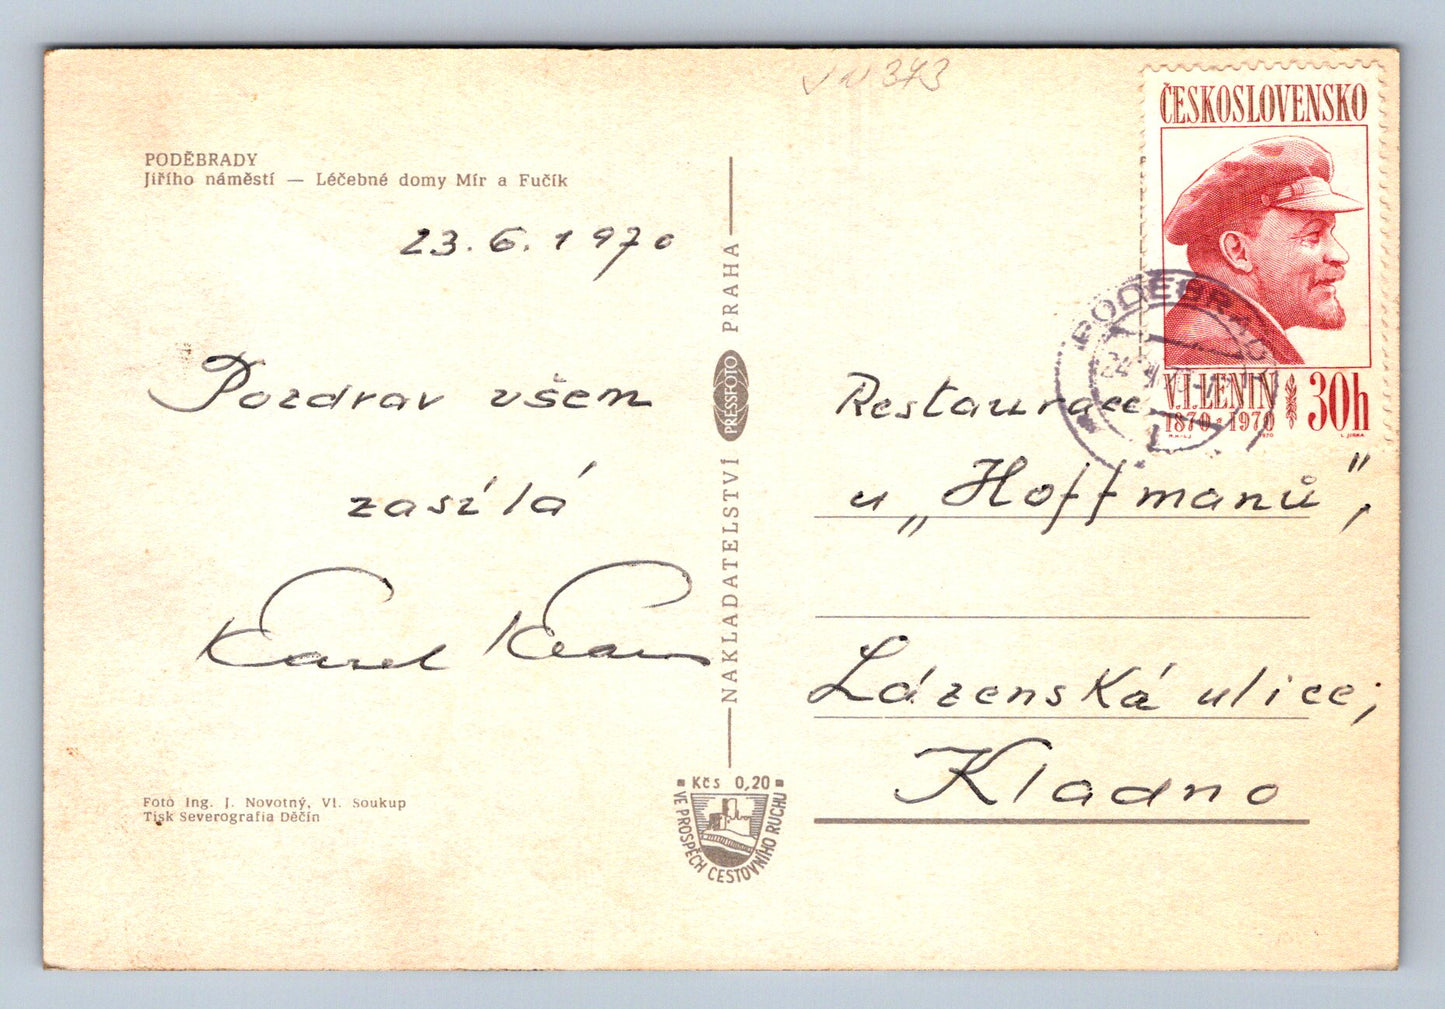 VN 373
PODĚBRADY
Jiřího náměstí — Léčebné domy Mír a Fučík
23. 6. 1970
Pozdrav všem
zasílá
Karel
Foto Ing. J. Novotný, Vl. Soukup
Tisk Severografia Děčín
NAKLADATELSTVÍ PRESSFOTO PRAHA
Kčs 0,20
VE PROSPĚCH CESTOVNÍHO RUCHU
ČESKOSLOVENSKO
V.I.LENIN 30h
1870-1970
PODĚBRADY
Restaurace
u „Hoffmanů",
Lázenská ulice;
Kladno